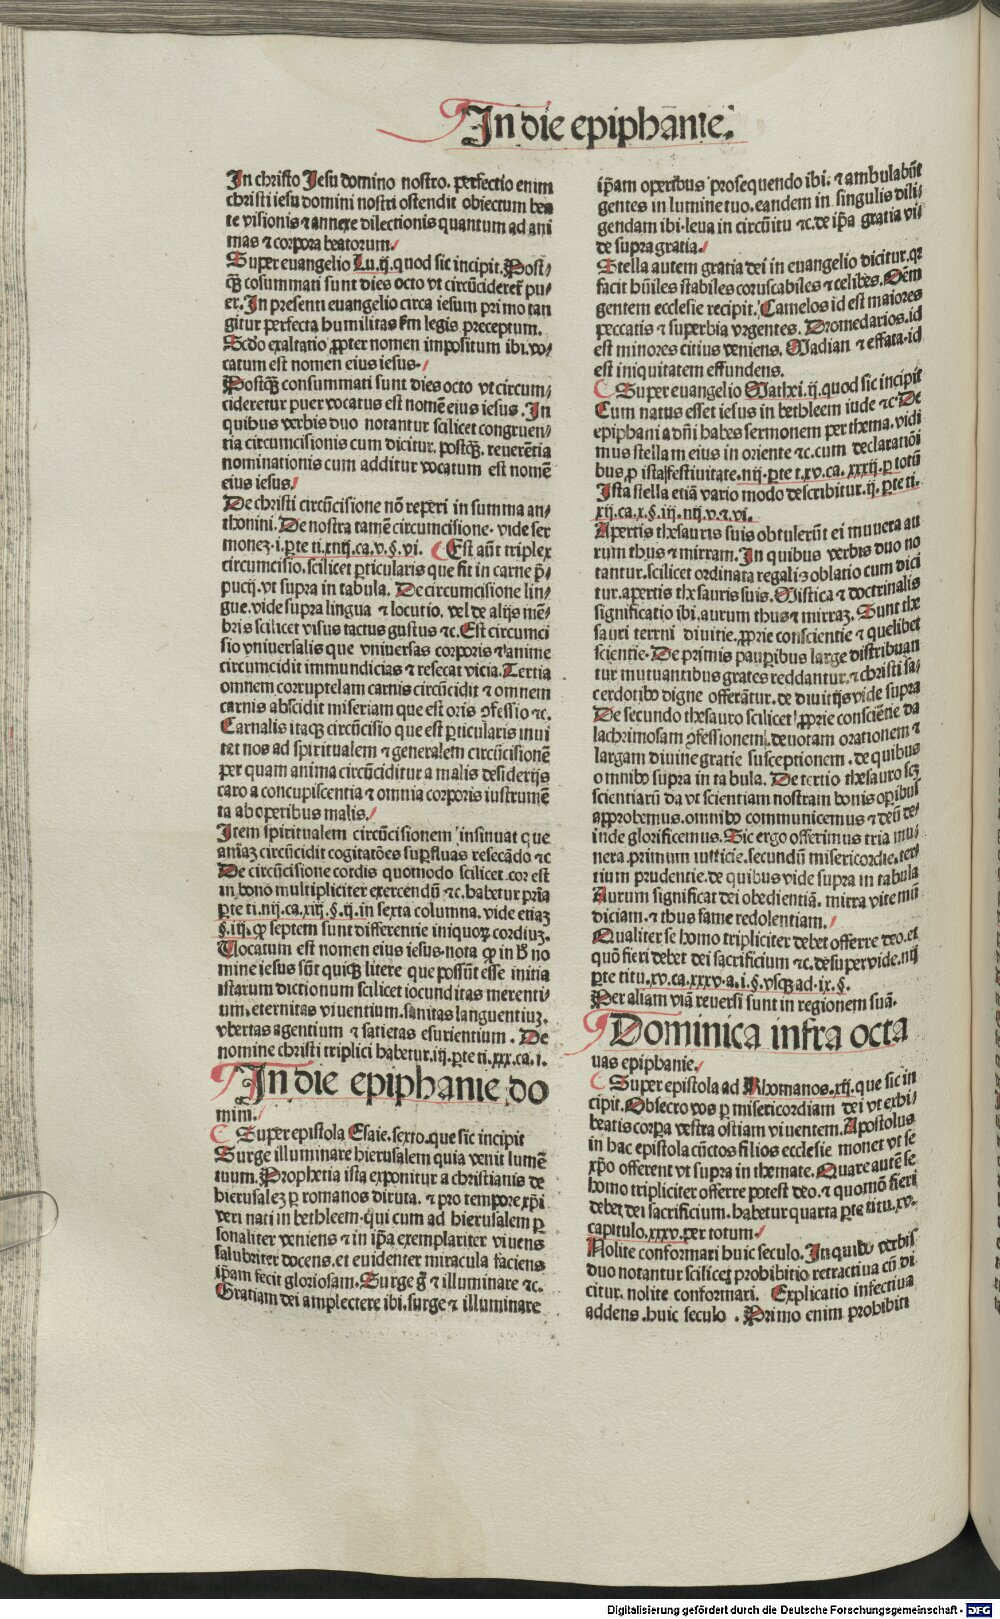 In die epiphānie.
In christo Iesu domino nostro. perfectio enim
christi iesu domini nostri ostendit obiectum bea
te visionis ⁊ annexe dilectionis quantum ad ani
mas ⁊ corpora beatorum.
Super euangelio Lu.ij. quod sic incipit. Post⸗
q̃ cōsummati sunt dies octo vt circūcideret̄ pu⸗
er. In presenti euangelio circa iesum primo tan
gitur perfecta humilitas scḋm legis preceptum.
Scḋo exaltatio ꝓpter nomen impositum ibi. vo⸗
catum est nomen eius iesus.
Postq̃ consummati sunt dies octo vt circum⸗
cideretur puer vocatus est nomē eius iesus. In
quibus verbis duo notantur scilicet congruen⸗
tia circumcisionis cum dicitur. postq̃. reuerētia
nominationis cum additur vocatum est nomē
eius iesus.
De christi circūcisione nō reperi in summa an⸗
thonini. De nostra tamē circumcisione. vide ser
monez. i. ꝑte ti.xiiij.ca.v.§.vi. Est aūt triplex
circumcisio. scilicet ꝑticularis que fit in carne p̄⸗
pucij. vt supra in tabula. De circumcisione lin⸗
gue. vide supra lingua ⁊ locutio. vel de alijs mē⸗
bris scilicet visus tactus gustus ⁊c. Est circumci
sio vniuersalis que vniuersas corporis ⁊ anime
circumcidit immundicias ⁊ resecat vicia. Tertia
omnem corruptelam carnis circūcidit ⁊ omnem
carnis abscidit miseriam que est oris ꝯfessio ⁊c.
Carnalis itaqꝫ circūcisio que est ꝑticularis inui
tat nos ad spiritualem ⁊ generalem circūcisionē
per quam anima circūciditur a malis desiderijs
caro a concupiscentia ⁊ omnia corporis instrumē
ta ab operibus malis.
Item spiritualem circūcisionem insinuat que
aīaꝫ circūcidit cogitatōes suꝑfluas resecādo ⁊c
De circūcisione cordis quomodo scilicet cor est
in bono multipliciter exercendū ⁊c. habetur prīa
ꝑte ti.iiij.ca.xiij.§.ij. in sexta columna. vide etiaꝫ
§.iij. ꝙ septem sunt differentie iniquoꝝ cordiuꝫ.
Vocatum est nomen eius iesus. nota ꝙ in ħ no
mine iesus sūt quiqꝫ litere que possūt esse initia
istarum dictionum scilicet iocunditas merenti⸗
um. eternitas viuentium. sanitas languentiuꝫ.
vbertas agentium ⁊ satietas esurientium. De
nomine christi triplici habetur.iij.ꝑte ti.xxx.ca.i.
In die epiphanie do
mini.
Super epistola Esaie. sexto. que sic incipit
Surge illuminare hierusalem quia venit lumē
tuum. Prophetia ista exponitur a christianis de
hierusaleꝫ ꝑ romanos diruta. ⁊ pro tempore xp̄i
veri nati in bethleem. qui cum ad hierusalem ꝑ
sonaliter veniens ⁊ in ip̄a exemplariter viuens
salubriter docens. et euidenter miracula faciens
ip̄am fecit gloriosam. Surge g̊ ⁊ illuminare ⁊c.
Gratiam dei amplectere ibi. surge ⁊ illuminare
ip̄am operibus prosequendo ibi. ⁊ ambulabūt
gentes in lumine tuo. eandem in singulis dili⸗
gendam ibi. leua in circūitu ⁊c. de ip̄a gratia vi⸗
de supra gratia.
Stella autem gratia dei in euangelio dicitur. qꝛ
facit hūiles stabiles coruscabiles ⁊ celibes. Oēm
gentem ecclesie recipit. Camelos id est maiores
peccatis ⁊ superbia vrgentes. Dromedarios. id
est minores citius veniens. Madian ⁊ effata. id
est iniquitatem effundens.
Super euangelio Mathei.ij. quod sic incipit
Cum natus esset iesus in bethleem iude ⁊c De
epiphania dn̄i habes sermonem per thema. vidi
mus stellam eius in oriente ⁊c. cum declaratiōi
bus ꝓ ista festiuitate. iiij. ꝑte t.xv.ca.xxxij. ꝑ totū
Ista stella etiā vario modo describitur.ij.ꝑte ti.
xij.ca.x.§.iij.iiij.v.⁊.vi.
Apertis thesauris suis obtulerūt ei munera au
rum thus ⁊ mirram. In quibus verbis duo no
tantur. scilicet ordinata regalis oblatio cum dici
tur. apertis thesauris suis. Mistica ⁊ doctrinalis
significatio ibi. aurum thus ⁊ mirraꝫ. Sunt the
sauri terrni diuitie. ꝓprie conscientie ⁊ quelibet
scientie. De primis pauꝑibus large distribuan
tur mutuantibus grates reddantur. ⁊ christi sa⸗
cerdotibꝰ digne offerātur. de diuitijs vide supra
De secundo thesauro scilicet ꝓprie consciētie da
lachrimosam ꝯfessionem. deuotam orationem ⁊
largam diuine gratie susceptionem. de quibus
omnibꝰ supra in tabula. De tertio thesauro scꝫ
scientiarū da vt scientiam nostram bonis oꝑibus
approbemus. omnibꝰ communicemus ⁊ deū de⸗
inde glorificemus. Sic ergo offerimus tria mu⸗
nera. primum iusticie. secundū misericordie. ter⸗
tium prudentie. de quibus vide supra in tabula
Aurum significat dei obedientiā. mirra vite mū
diciam. ⁊ thus fame redolentiam.
Qualiter se homo tripliciter debet offerre deo. et
quō fieri debet dei sacrificium ⁊c. desuper vide. iiij
ꝑte titu.xv.ca.xxxv.a.i.§.vsqꝫ ad.ix.§.
Per aliam viā reuersi sunt in regionem suā.
Dominica infra octa
uas epiphanie.
Super epistola ad Rhomanos.xij. que sic in
cipit. Obsecro vos ꝑ misericordiam dei vt exhi⸗
beatis corpa vestra ostiam viuentem. Apostolus
in hac epistola cūctos filios ecclesie monet vt se
xp̄o offerent vt supra in themate. Quare autē se
homo tripliciter offerre potest deo. ⁊ quomō fieri
debet dei sacrificium. habetur quarta ꝑte titu.xv.
capitulo.xxxv. per totum
Nolite conformari huic seculo. In quibꝰ verbis
duo notantur scilicet prohibitio retractiua cū di
citur. nolite conformari. Explicatio infectiua
addens. huic seculo. Primo enim prohibiti
Digitalisierung gefördert durch die Deutsche Forschungsgemeinschaft - DFG